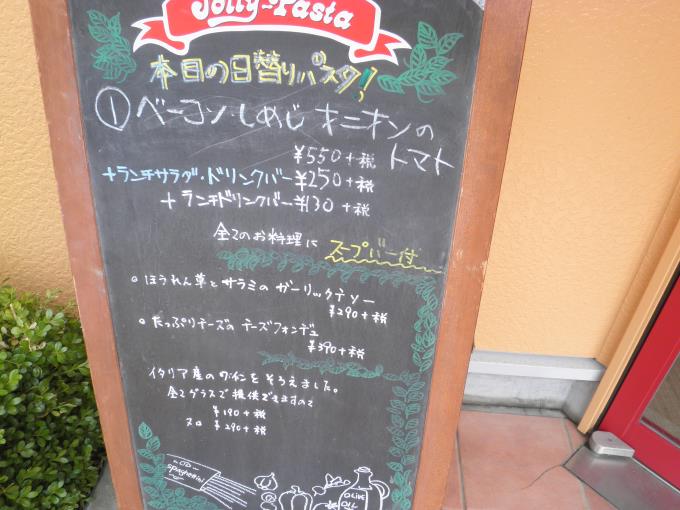 Jolly-Pasta
本日の日替りパスタ!!
① ベーコン・しめじ オニオンの
トマト
¥550+税
+ランチサラダ・ドリンクバー¥250+税
+ランチドリンクバー¥130+税
全てのお料理に スープバー付
○ほうれん草とサラミのガーリックテソー
¥290+税
○たっぷりチーズのチーズフォンデュ
¥390+税
イタリア産のワインをそろえました。
全てグラスで提供できますので
¥190+税
¥290+税
spaghetti
OLIVE
OIL